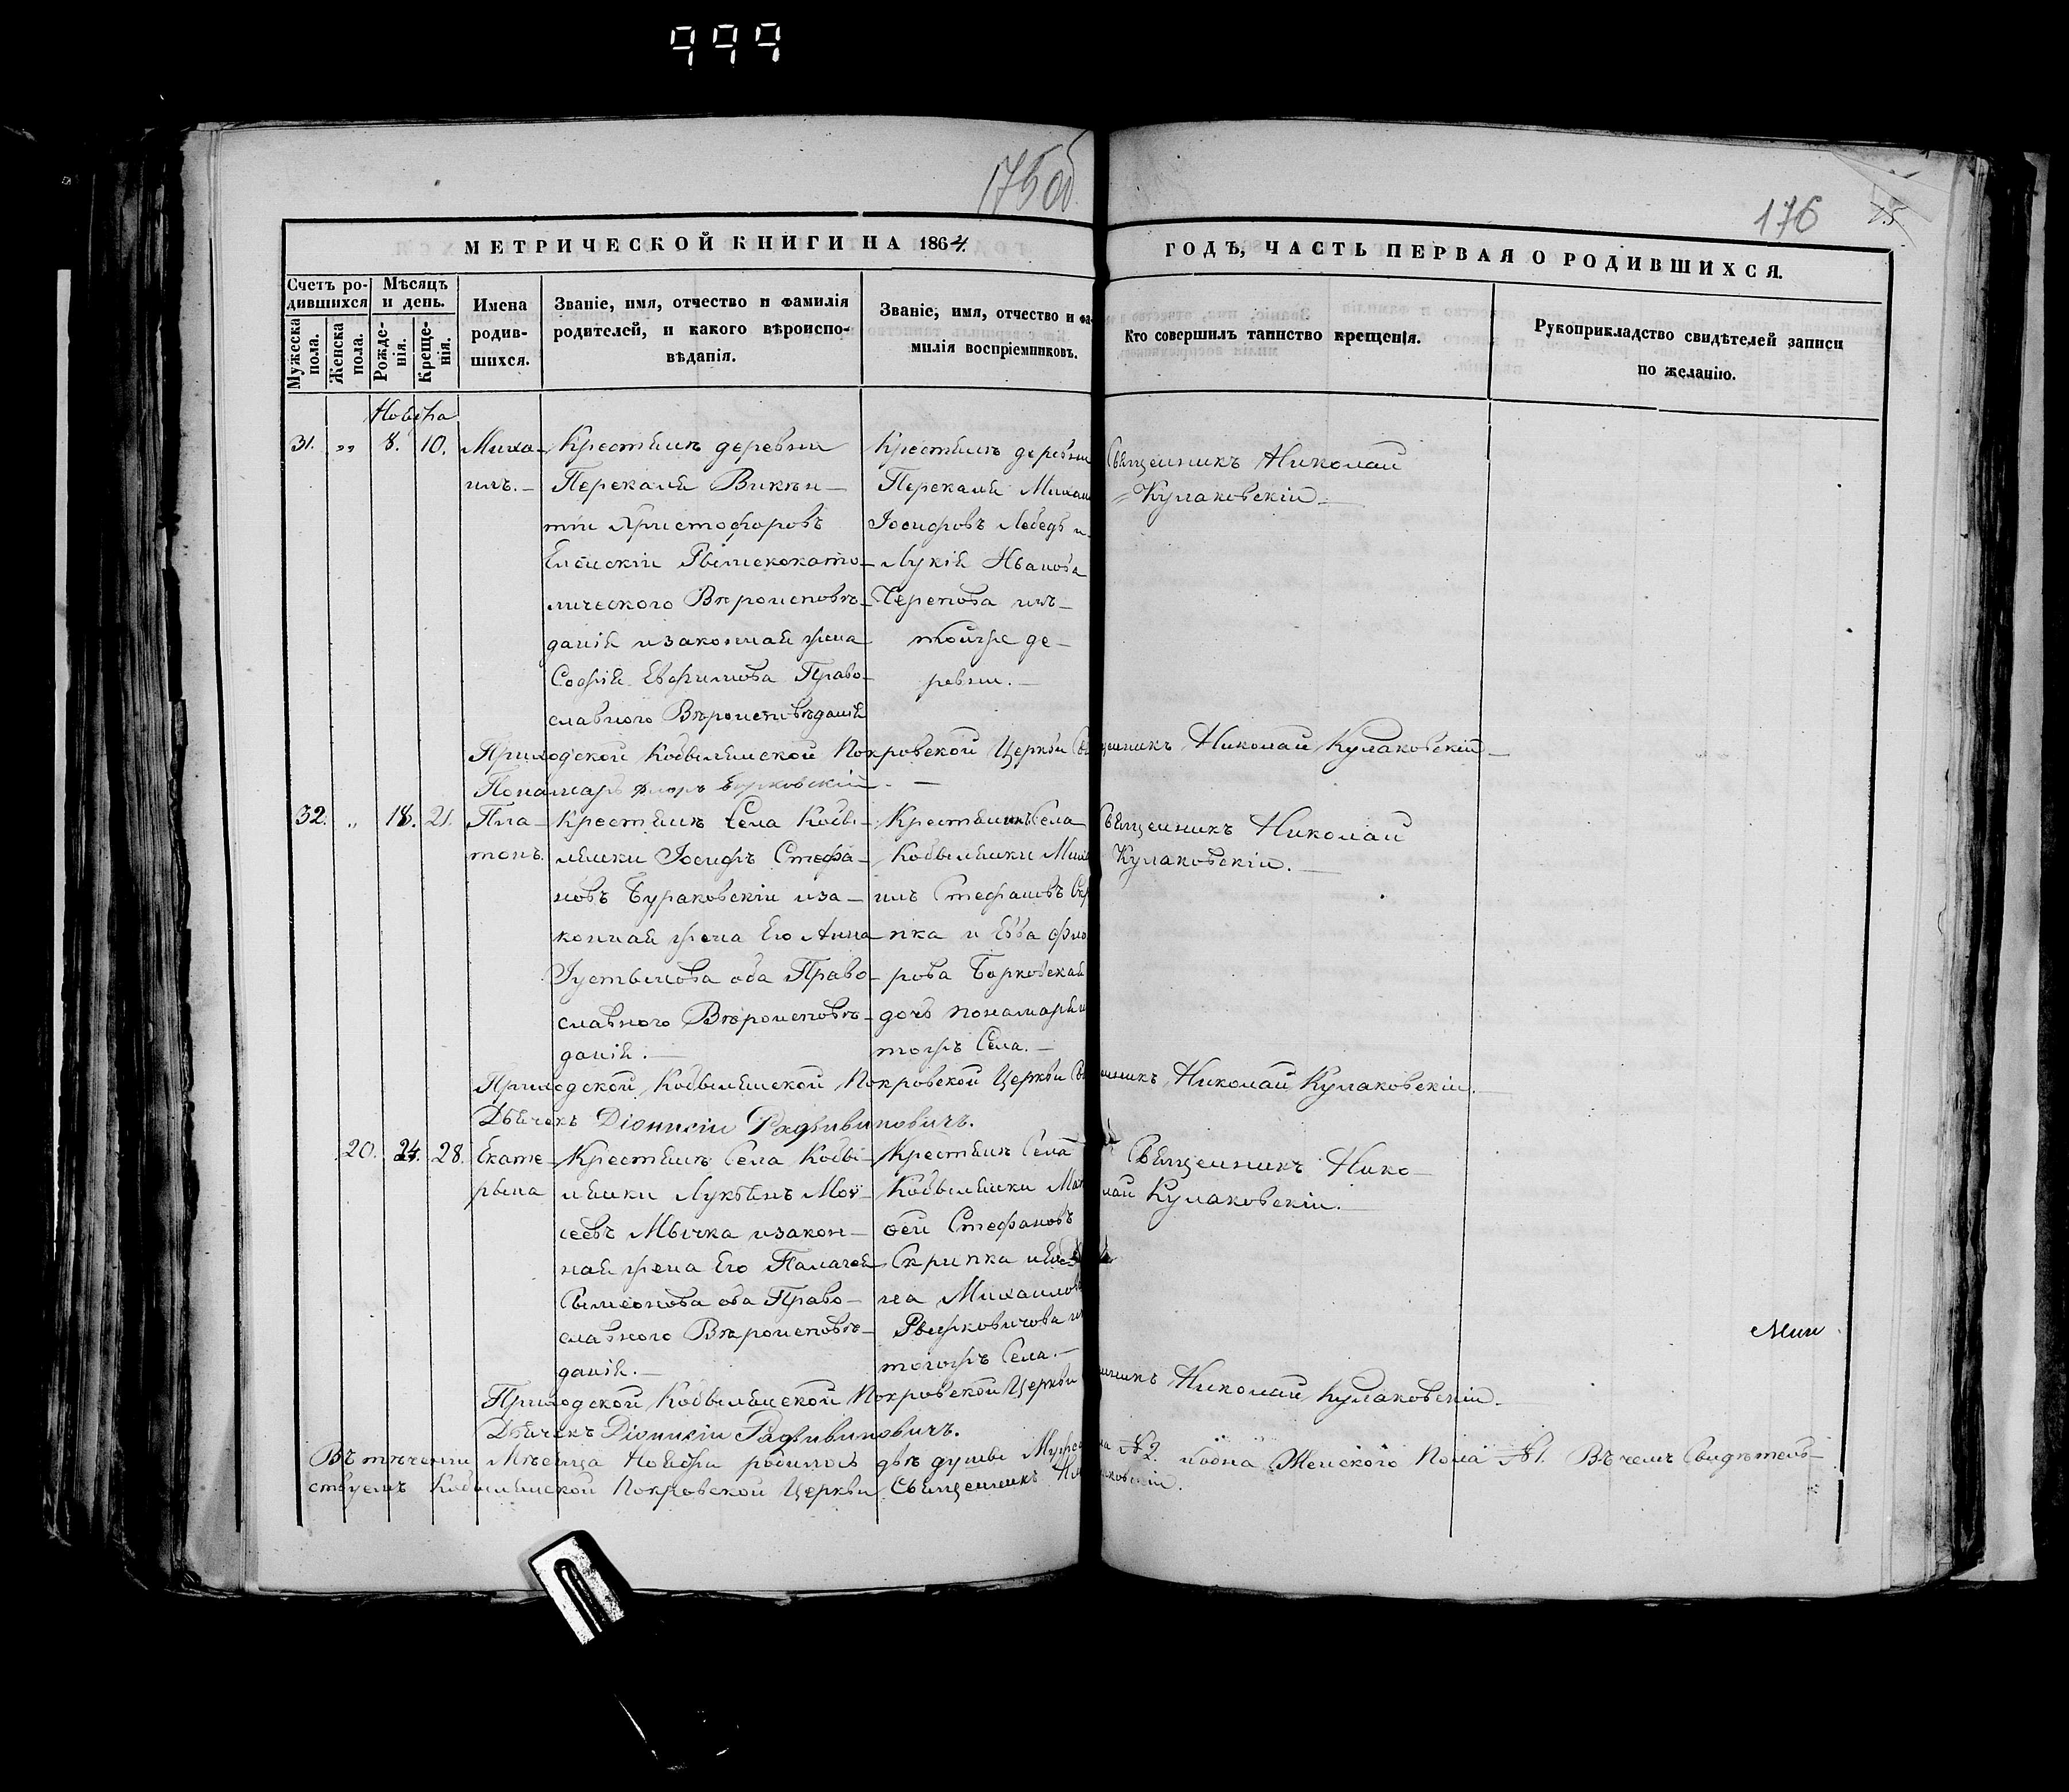 999
175 об
176
МЕТРИЧЕСКОЙ КНИГИ НА 1864
ГОДЪ, ЧАСТЬ ПЕРВАЯ О РОДИВШИХСЯ.
Счетъ ро-
дившихся
Мужеска
пола.
Женска
пола.
Мѣсяцъ
и день.
Рожде-
нія.
Креще-
нія.
Имена
родив-
шихся.
Званіе, имя, отчество и фамилія
родителей, и какого вѣроиспо-
вѣданія.
Званіе, имя, отчество и фа-
милія воспріемниковъ.
Кто совершилъ таинство крещенія.
Рукоприкладство свидѣтелей записи
по желанію.
Ноября
31. „ 8. 10.
Миха-
илъ.-
Крестьянъ деревни
Перекаля Викен-
тій Христофоровъ
Римскокато-
лического Вѣроисповѣ-
данія изаконная жена
Софія Евфимова Право-
славного Вѣроисповѣданія
Крестьянъ деревни
Перекаля Михаи
Іосифовъ Лебедь и
Лукія Иванова
Черепова изъ
тойже де-
ревни.-
Священникъ Николай
Кулаковскій.-
Приходской Кобыльнской Покровской Церкви Священникъ Николай Кулаковскій
Пономарь Флоръ Борковскій.-
32. „ 18. 21.
Пла-
тонъ.
Крестьянъ Села Кобы-
льники Іосифъ Стефа-
новъ Бураковскій иза-
конная жена Его Анна
Іустынова оба Право-
славного Вѣроисповѣ-
данія.-
Крестьянинъ Села
Кобыльники Миха
илъ Стефановъ Скр
пка и Евва Фло
рова Борковская
дочь пономаря и
тогожъ Села.-
Священникъ Николай
Кулаковскій.-
Приходской Кобыльнской Покровской Церкви Священникъ Николай Кулаковскій.
Дьячекъ Діонисій Радзивиновичъ.
20. 24. 28.
Екате-
рына
Крестьянъ Села Кобы-
льники Лукьянъ Мой-
сеевъ Мычка изакон-
ная жена Его Палагея
Сымеонова оба Право-
славного Вѣроисповѣ-
данія.-
Крестьянъ Села
Кобыльники Мат
фей Стефановъ
Скрипка и
на Михаилов
Рыжковичова и
тогожъ Села.-
Священникъ Нико-
лай Кулаковскій.-
Мин
Приходской Кобыльнской Покровской Церкви Священникъ Николай Кулаковскій.
Дьячекъ Діонисій Радзивиновичъ.
Въ теченіи Мѣсяца Ноября родилось двѣ душы Мужеска №2. иодна Женского Пола №1. Въ чемъ Свидѣтель-
ствуемъ Кобыльнской Покровской Церкви Священникъ